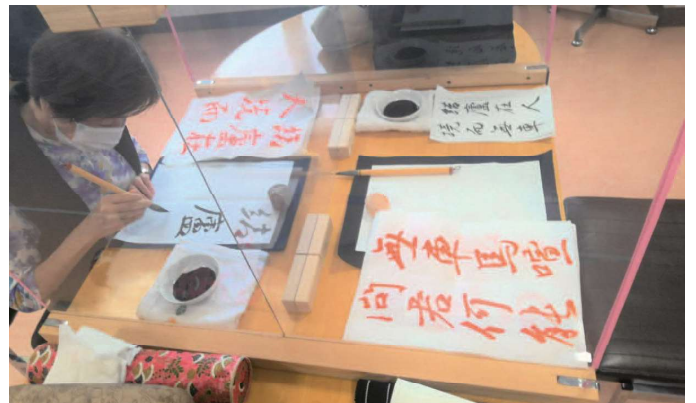 結廬在
人境而
結廬在人
境而無車
結廬
無車馬喧
問君何能